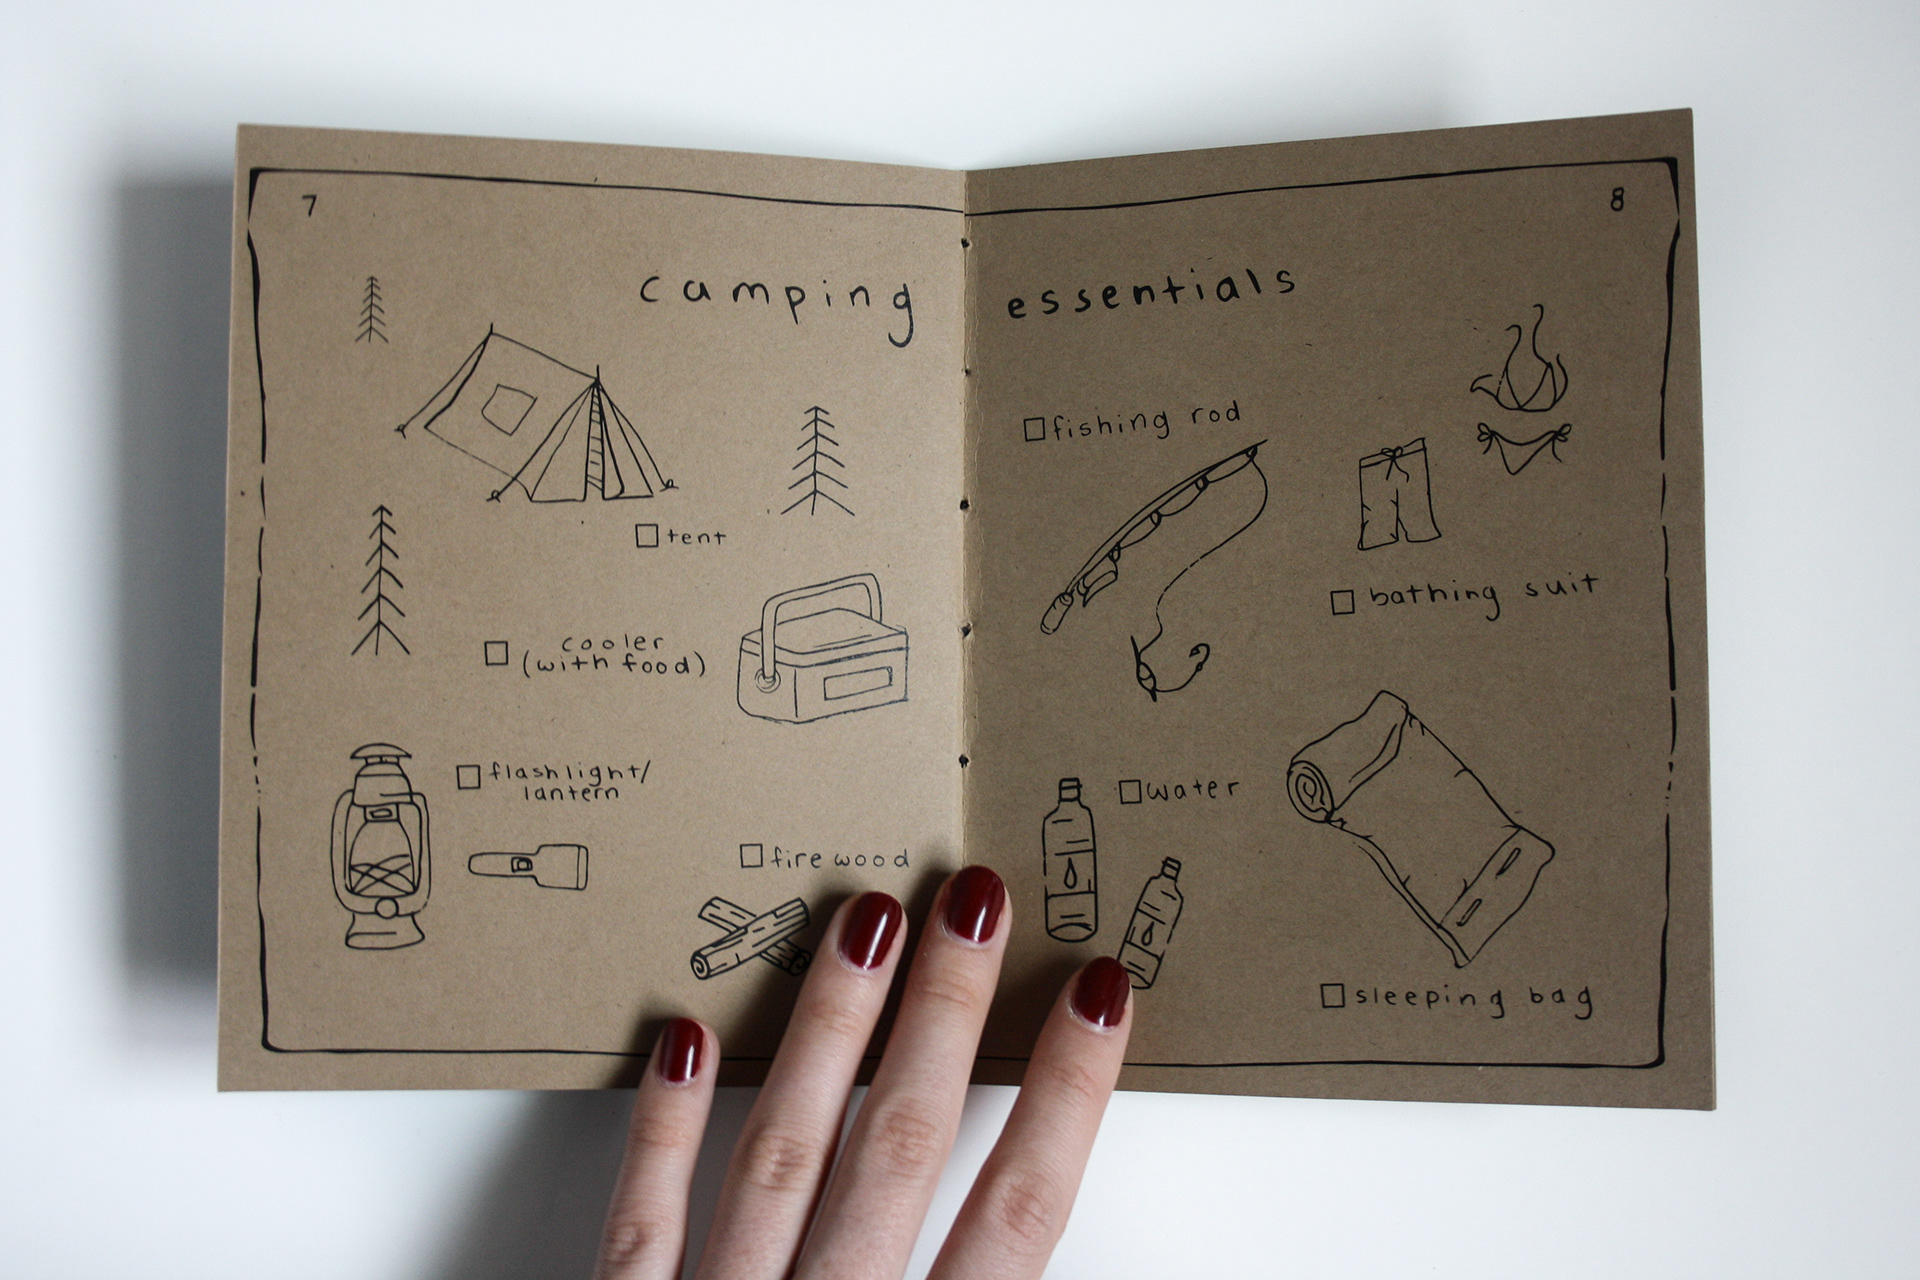 7
8
camping essentials
☐ tent
☐ cooler
(with food)
☐ flashlight/
lantern
☐ firewood
☐ fishing rod
☐ bathing suit
☐ water
☐ sleeping bag